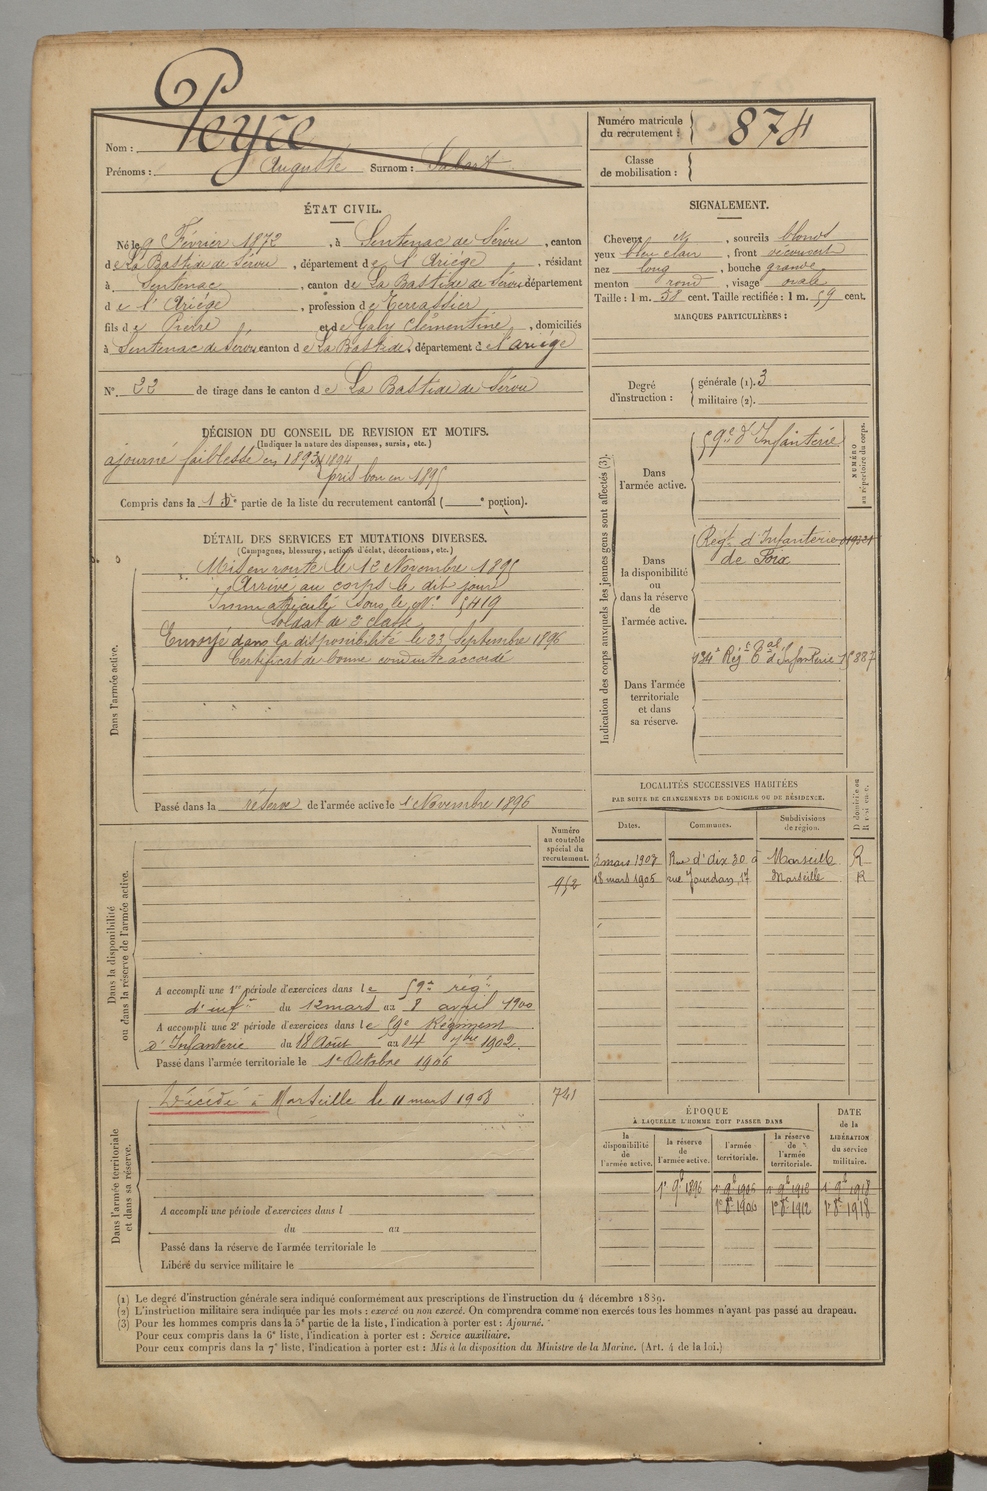 Nom : Peyre
Prénoms : Auguste Surnom : Salart
Numéro matricule du recrutement : 874
Classe de mobilisation :
ÉTAT CIVIL.
Né le 9 Février 1872, à Sentenac de Sérou, canton
de La Bastide de Sérou, département de l'Ariége, résidant
à Sentenac, canton de La Bastide de Sérou, département
de l'Ariége, profession de Terrassier
fils de Pierre et de Galy Clémentine, domiciliés
à Sentenac de Sérou canton de La Bastide, département de l'Ariége
N° 22 de tirage dans le canton de La Bastide de Sérou
SIGNALEMENT.
Cheveux et, sourcils blonds
yeux bleu clair, front découvert
nez long, bouche grande
menton rond, visage ovale
Taille : 1 m. 58 cent. Taille rectifiée : 1 m. 59 cent.
MARQUES PARTICULIÈRES :
Degré d'instruction : générale (1). 3
militaire (2).
DÉCISION DU CONSEIL DE REVISION ET MOTIFS.
(Indiquer la nature des dispenses, sursis, etc.)
ajourné faiblesse en 1893 1894
pris bon en 1895
Compris dans la 1e partie de la liste du recrutement cantonal ( e portion).
DÉTAIL DES SERVICES ET MUTATIONS DIVERSES.
(Campagnes, blessures, actions d'éclat, décorations, etc.)
Dans l'armée active.
Mis en route le 13 Novembre 1895
Arrivé au corps le dit jour
Immatriculé sous le N° 5419
Soldat de 2e classe
Envoyé dans la disponibilité le 23 Septembre 1896
Certificat de bonne conduite accordé
Passé dans la réserve de l'armée active le 1 Novembre 1896
Indication des corps auxquels les jeunes gens sont affectés (3).
NUMÉRO au répertoire du corps.
Dans l'armée active.
59e d'Infanterie
Dans la disponibilité ou dans la réserve de l'armée active.
Régt d'Infanterie
de Foix
Dans l'armée territoriale et dans sa réserve.
134e Régt al d'Infanterie 15887
LOCALITÉS SUCCESSIVES HABITÉES
PAR SUITE DE CHANGEMENTS DE DOMICILE OU DE RÉSIDENCE.
Dates. Communes. Subdivisions de région. Domicile ou Résidence.
Rue d'Aix 30 à Marseille R
18 mars 1905 rue Jourdan, 17 Marseille R
Dans la disponibilité ou dans la réserve de l'armée active.
Numéro au contrôle spécial du recrutement.
952
A accompli une 1re période d'exercices dans le 59e rég.
d'inf. du 12 mars au 8 avril 1900
A accompli une 2e période d'exercices dans le 59e Régiment
d'Infanterie du 18 Août au 14 7bre 1902.
Passé dans l'armée territoriale le 1er Octobre 1906
Dans l'armée territoriale et dans sa réserve.
Décédé à Marseille le 11 mars 1908
741
A accompli une période d'exercices dans l
du au
Passé dans la réserve de l'armée territoriale le
Libéré du service militaire le
ÉPOQUE
À LAQUELLE L'HOMME DOIT PASSER DANS
la disponibilité de l'armée active. la réserve de l'armée active. l'armée territoriale. la réserve de l'armée territoriale.
DATE de la LIBÉRATION du service militaire.
1er 9b 1896 1er 9b 1906 1er 9b 1912 1er 9b 1918
1er 8b 1906 1er 8b 1912 1er 8b 1918
(1) Le degré d'instruction générale sera indiqué conformément aux prescriptions de l'instruction du 4 décembre 1889.
(2) L'instruction militaire sera indiquée par les mots : exercé ou non exercé. On comprendra comme non exercés tous les hommes n'ayant pas passé au drapeau.
(3) Pour les hommes compris dans la 5e partie de la liste, l'indication à porter est : Ajourné.
Pour ceux compris dans la 6e liste, l'indication à porter est : Service auxiliaire.
Pour ceux compris dans la 7e liste, l'indication à porter est : Mis à la disposition du Ministre de la Marine. (Art. 4 de la loi.)